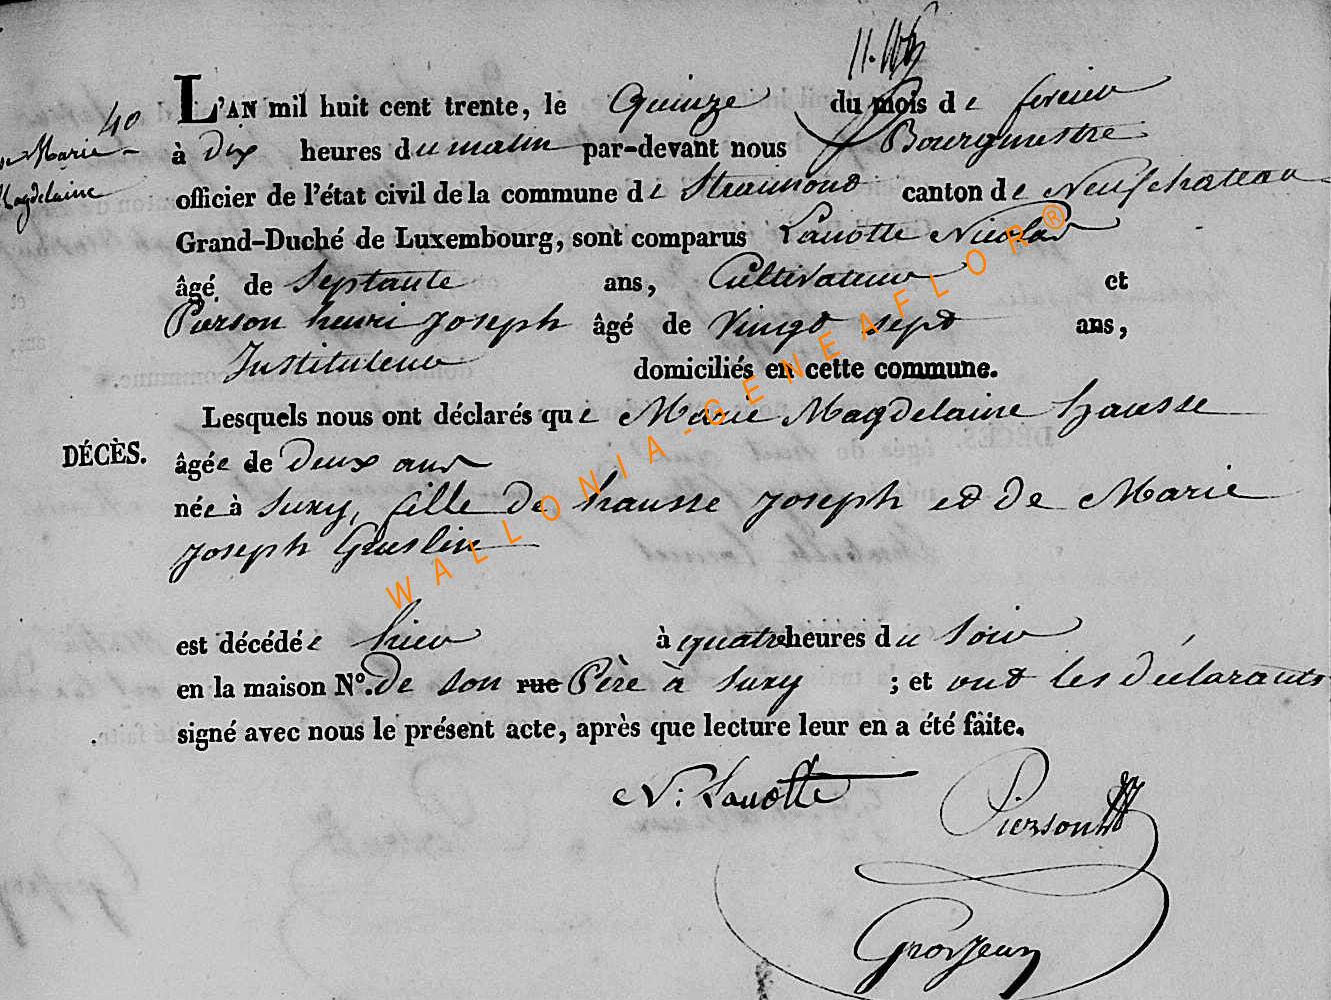 40
Marie
Magdelaine
L'AN mil huit cent trente, le Quinze du mois de fevrier
à dix heures du matin par-devant nous Bourgmestre
officier de l'état civil de la commune de Straimont canton de Neufchateau
Grand-Duché de Luxembourg, sont comparus Lanotte Nicolas
âgé de Septante ans, Cultivateur et
Pierson henri joseph âgé de Vingt sept ans,
Instituteur domiciliés en cette commune.
Lesquels nous ont déclarés que Marie Magdelaine hausse
DÉCÈS.
âgée de deux ans
née à Suxy, fille de hausse joseph et de Marie
joseph Guslin
est décédée hier à quatre heures du Soir
en la maison N°. De son rue Père à Suxy ; et ont les déclarants
signé avec nous le présent acte, après que lecture leur en a été fâite.
N: Lanotte
Pierson
Grosjean
WALLONIA-GENEAFLOR®